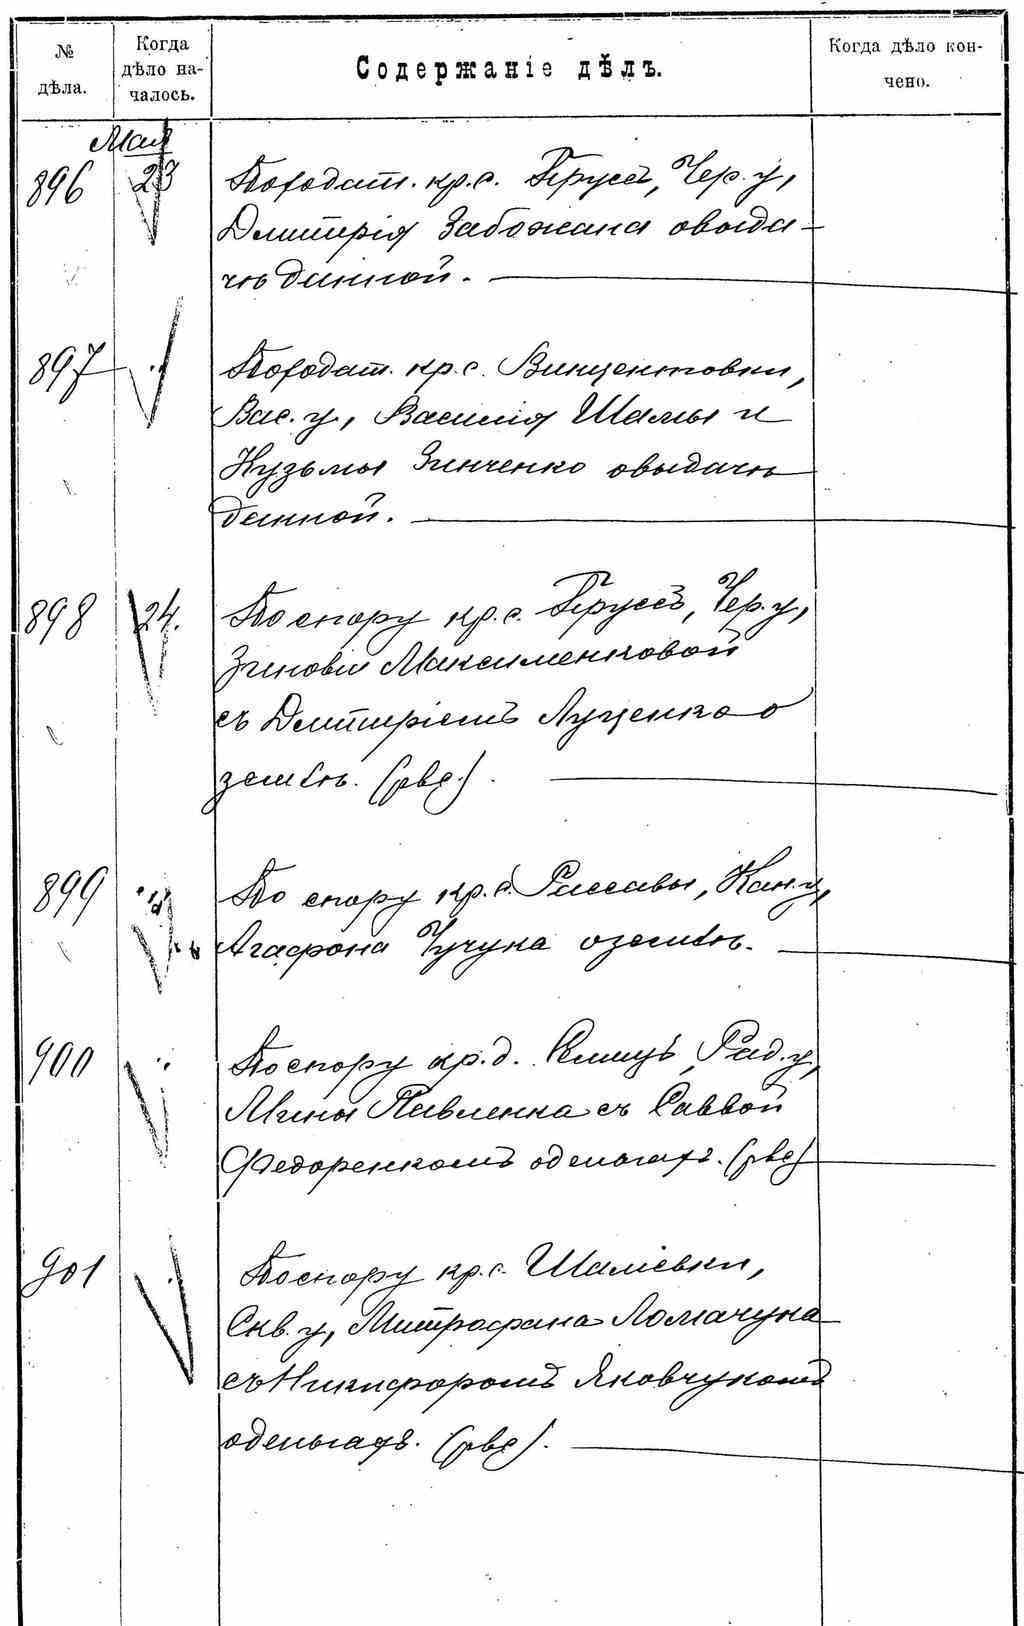 № дѣла.
Когда дѣло на-
чалось.
Содержаніе дѣлъ.
Когда дѣло кон-
чено.
Мая
896 23 По ходат. кр. с. Трусъ, Чер. у,
Дмитрія Забожана о выда-
чѣ данной.
897 " По ходат. кр. с. Винцентовки,
Вас. у, Василія Шамы и
Кузьмы Зинченко о выдачѣ
данной.
898 24. По спору кр. с. Трусъ, Чер. у,
Зиновіи Максименковой
съ Дмитріемъ Луценко о
землѣ. (рвс.).
899 " По спору кр. с. Россавы, Кан. у,
Агафона Чучука о землѣ.
900 " По спору кр. д. Рад. у,
Мины Павленка съ Саввой
Федоренкомъ о деньгахъ. (рвс)
901 " По спору кр. с. Шаліевки,
Скв. у, Митрофана Ломачука
съ Никифоромъ Яковчукомъ
о деньгахъ. (рвс).